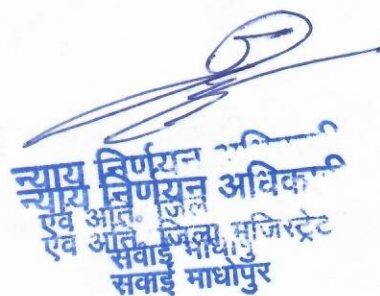 न्याय निर्णयन
न्याय निर्णयन अधिकारी
एवं अति. जिला
एवं अति. जिला मजिस्ट्रेट
सवाई माधोपुर
सवाई माधोपुर